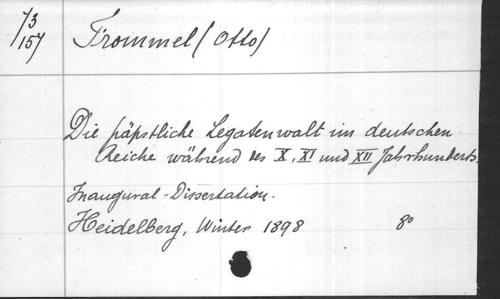 73/157
Frommel (Otto)
Die päpstliche Legatenwalt im deutschen
Reiche während des X, XI und XII Jahrhunderts.
Inaugural-Dissertation.
Heidelberg, Winter 1898 8°